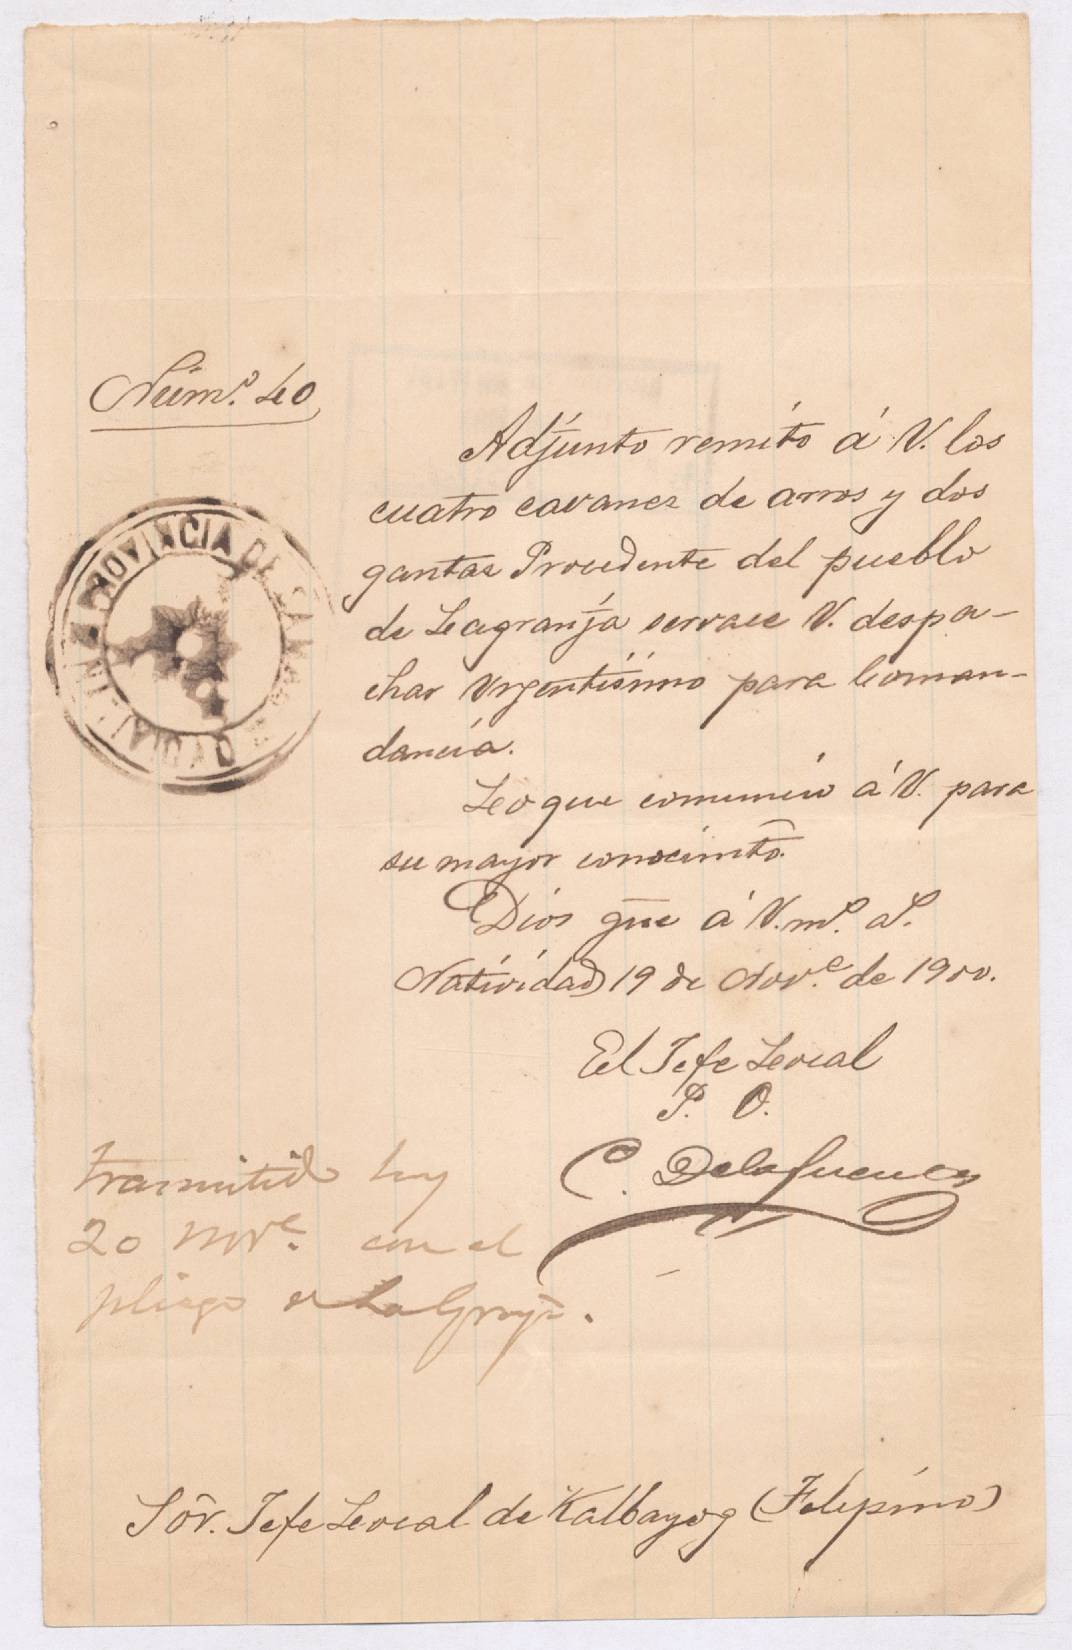 Núm.º 40
PROVINCIA DE
Adjunto remito á V. los
cuatro cavanes de arros y dos
gantas Procedente del pueblo
de Lagranja servase V. despa-
char Vrgentisimo para Coman-
dancia.
Lo que comunico á V. para
su mayor conocimto.
Dios gue á V. m.s a.s
Natividad 19 de Nov.e de 1900.
El Jefe Local
P. O.
C. Delafuente
trasmitido hoy
20 Nov.e con el
pliego a La Granja.
Sôr. Jefe Local de Kalbayog (Felipino)